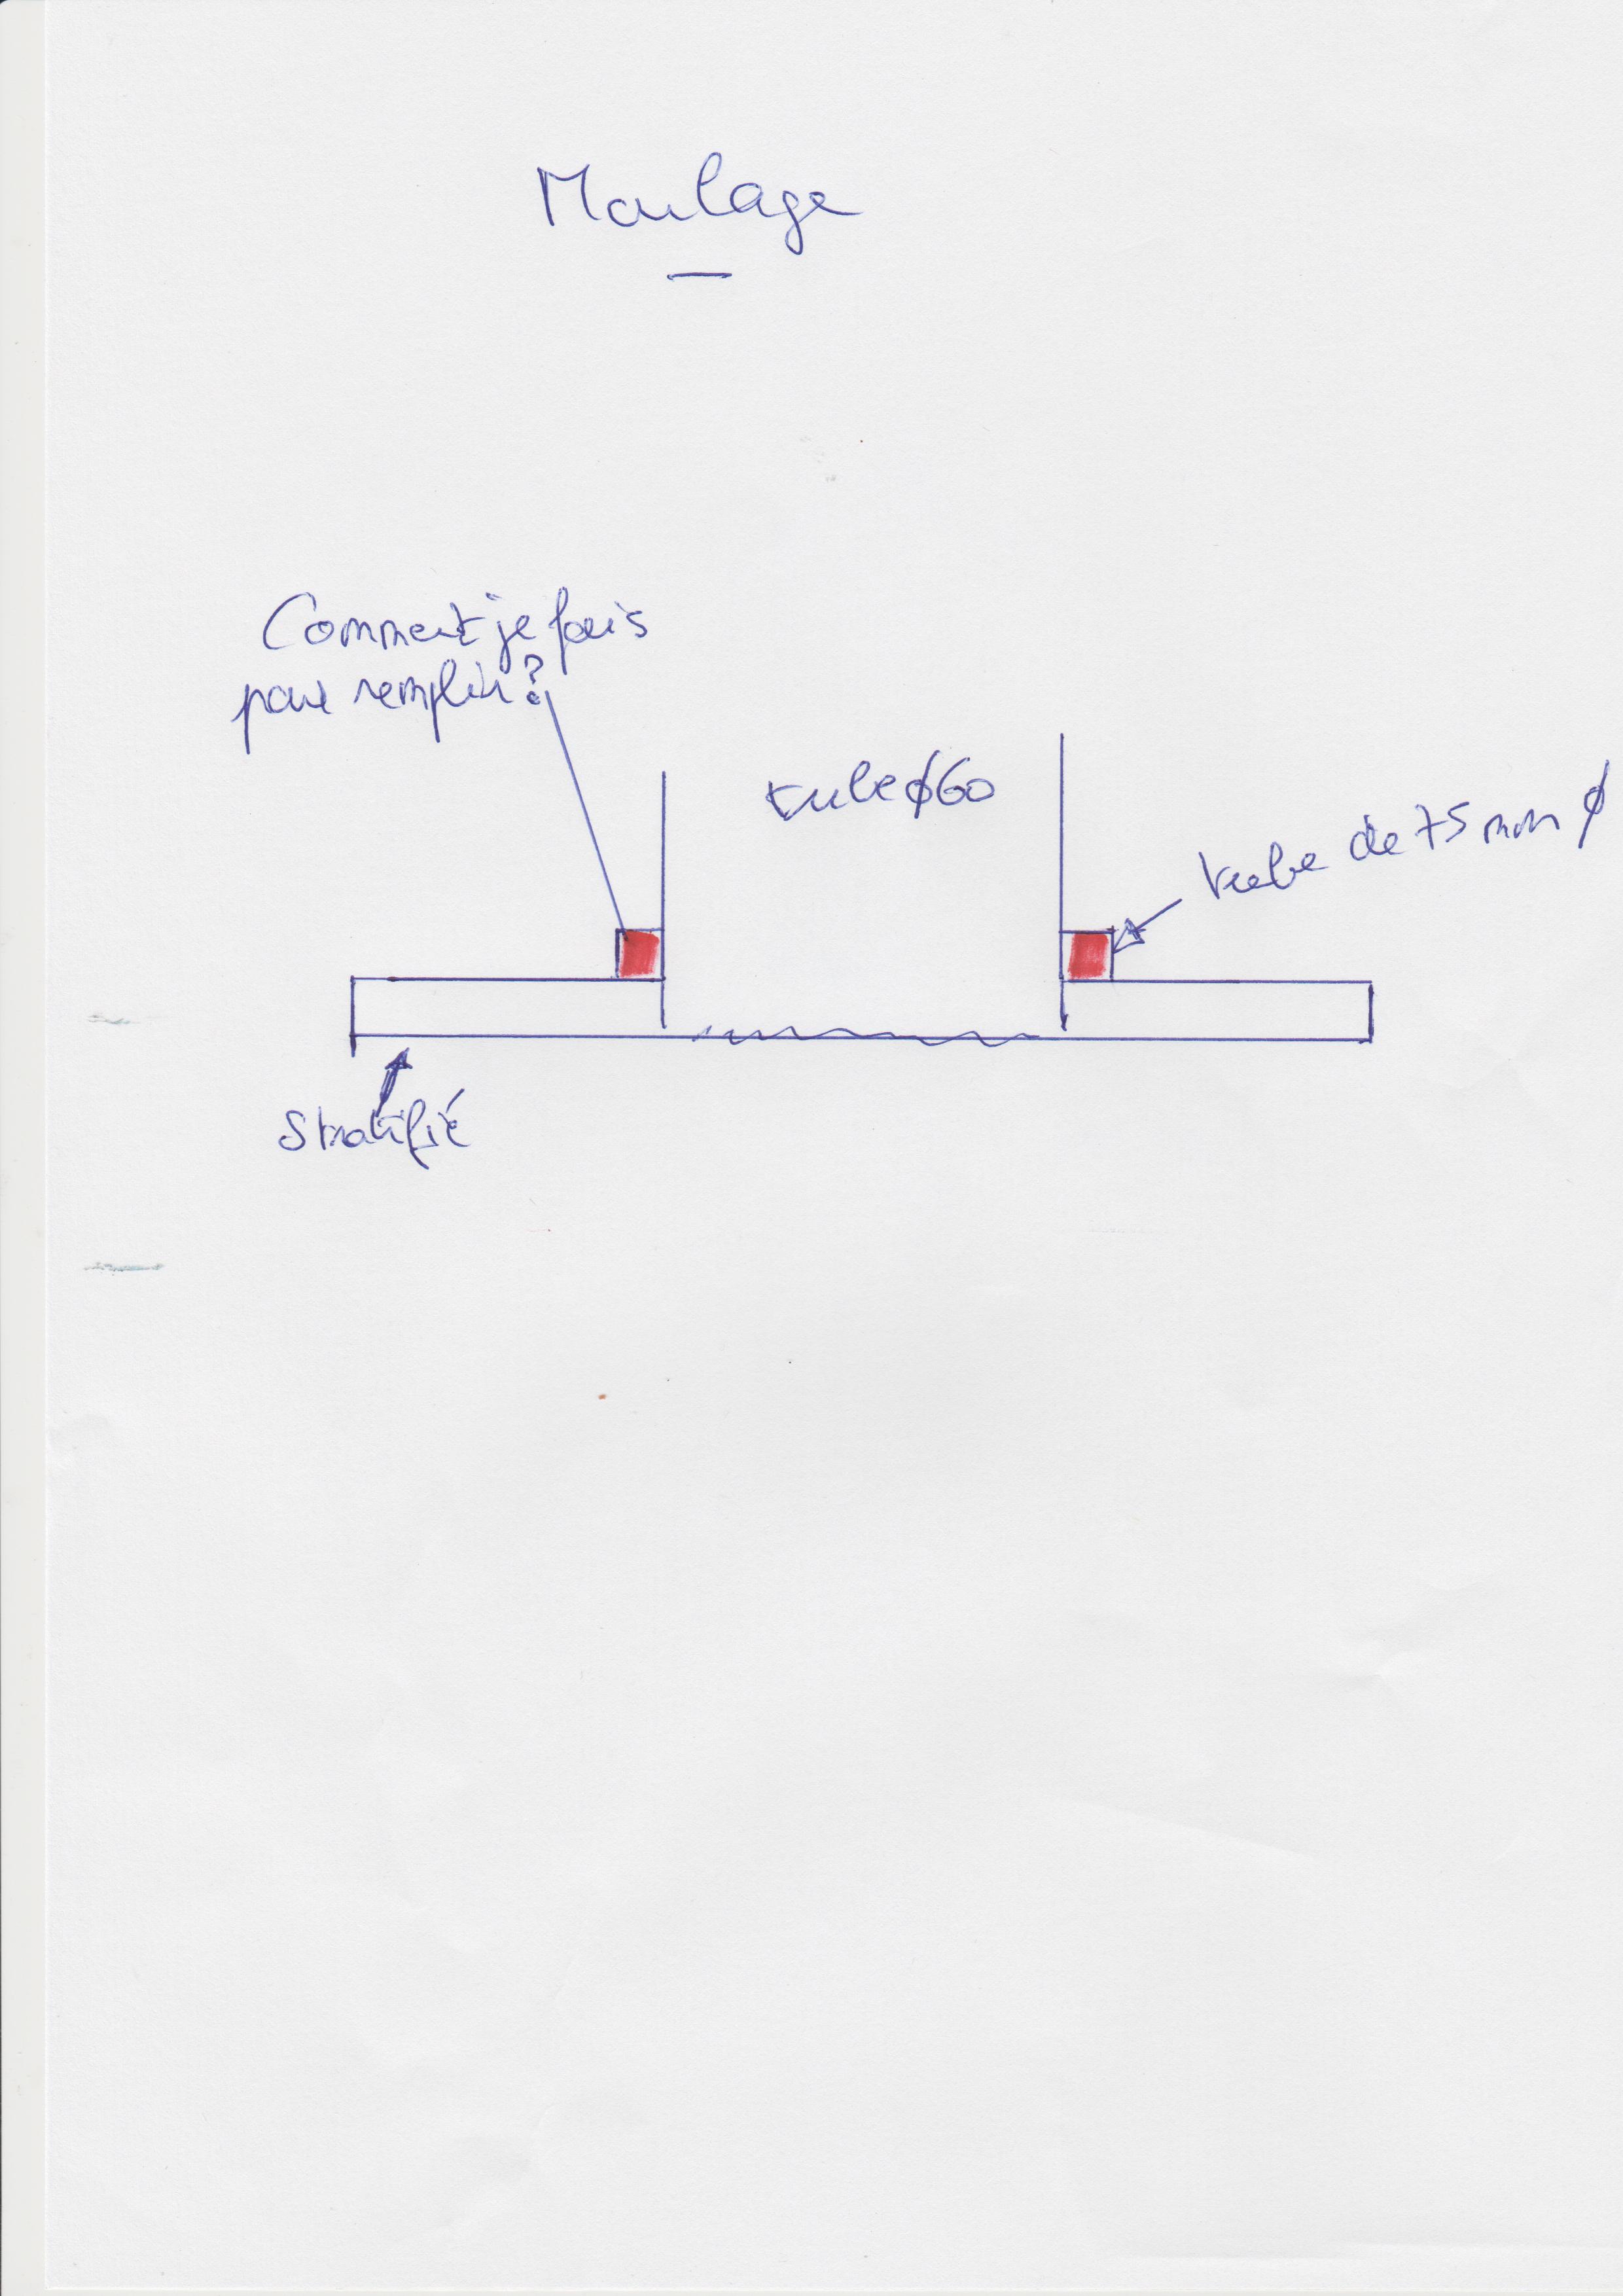 Moulage
Comment je fais
pour remplir?
tube ϕ60
tube de 75 mm ϕ
Stratifié